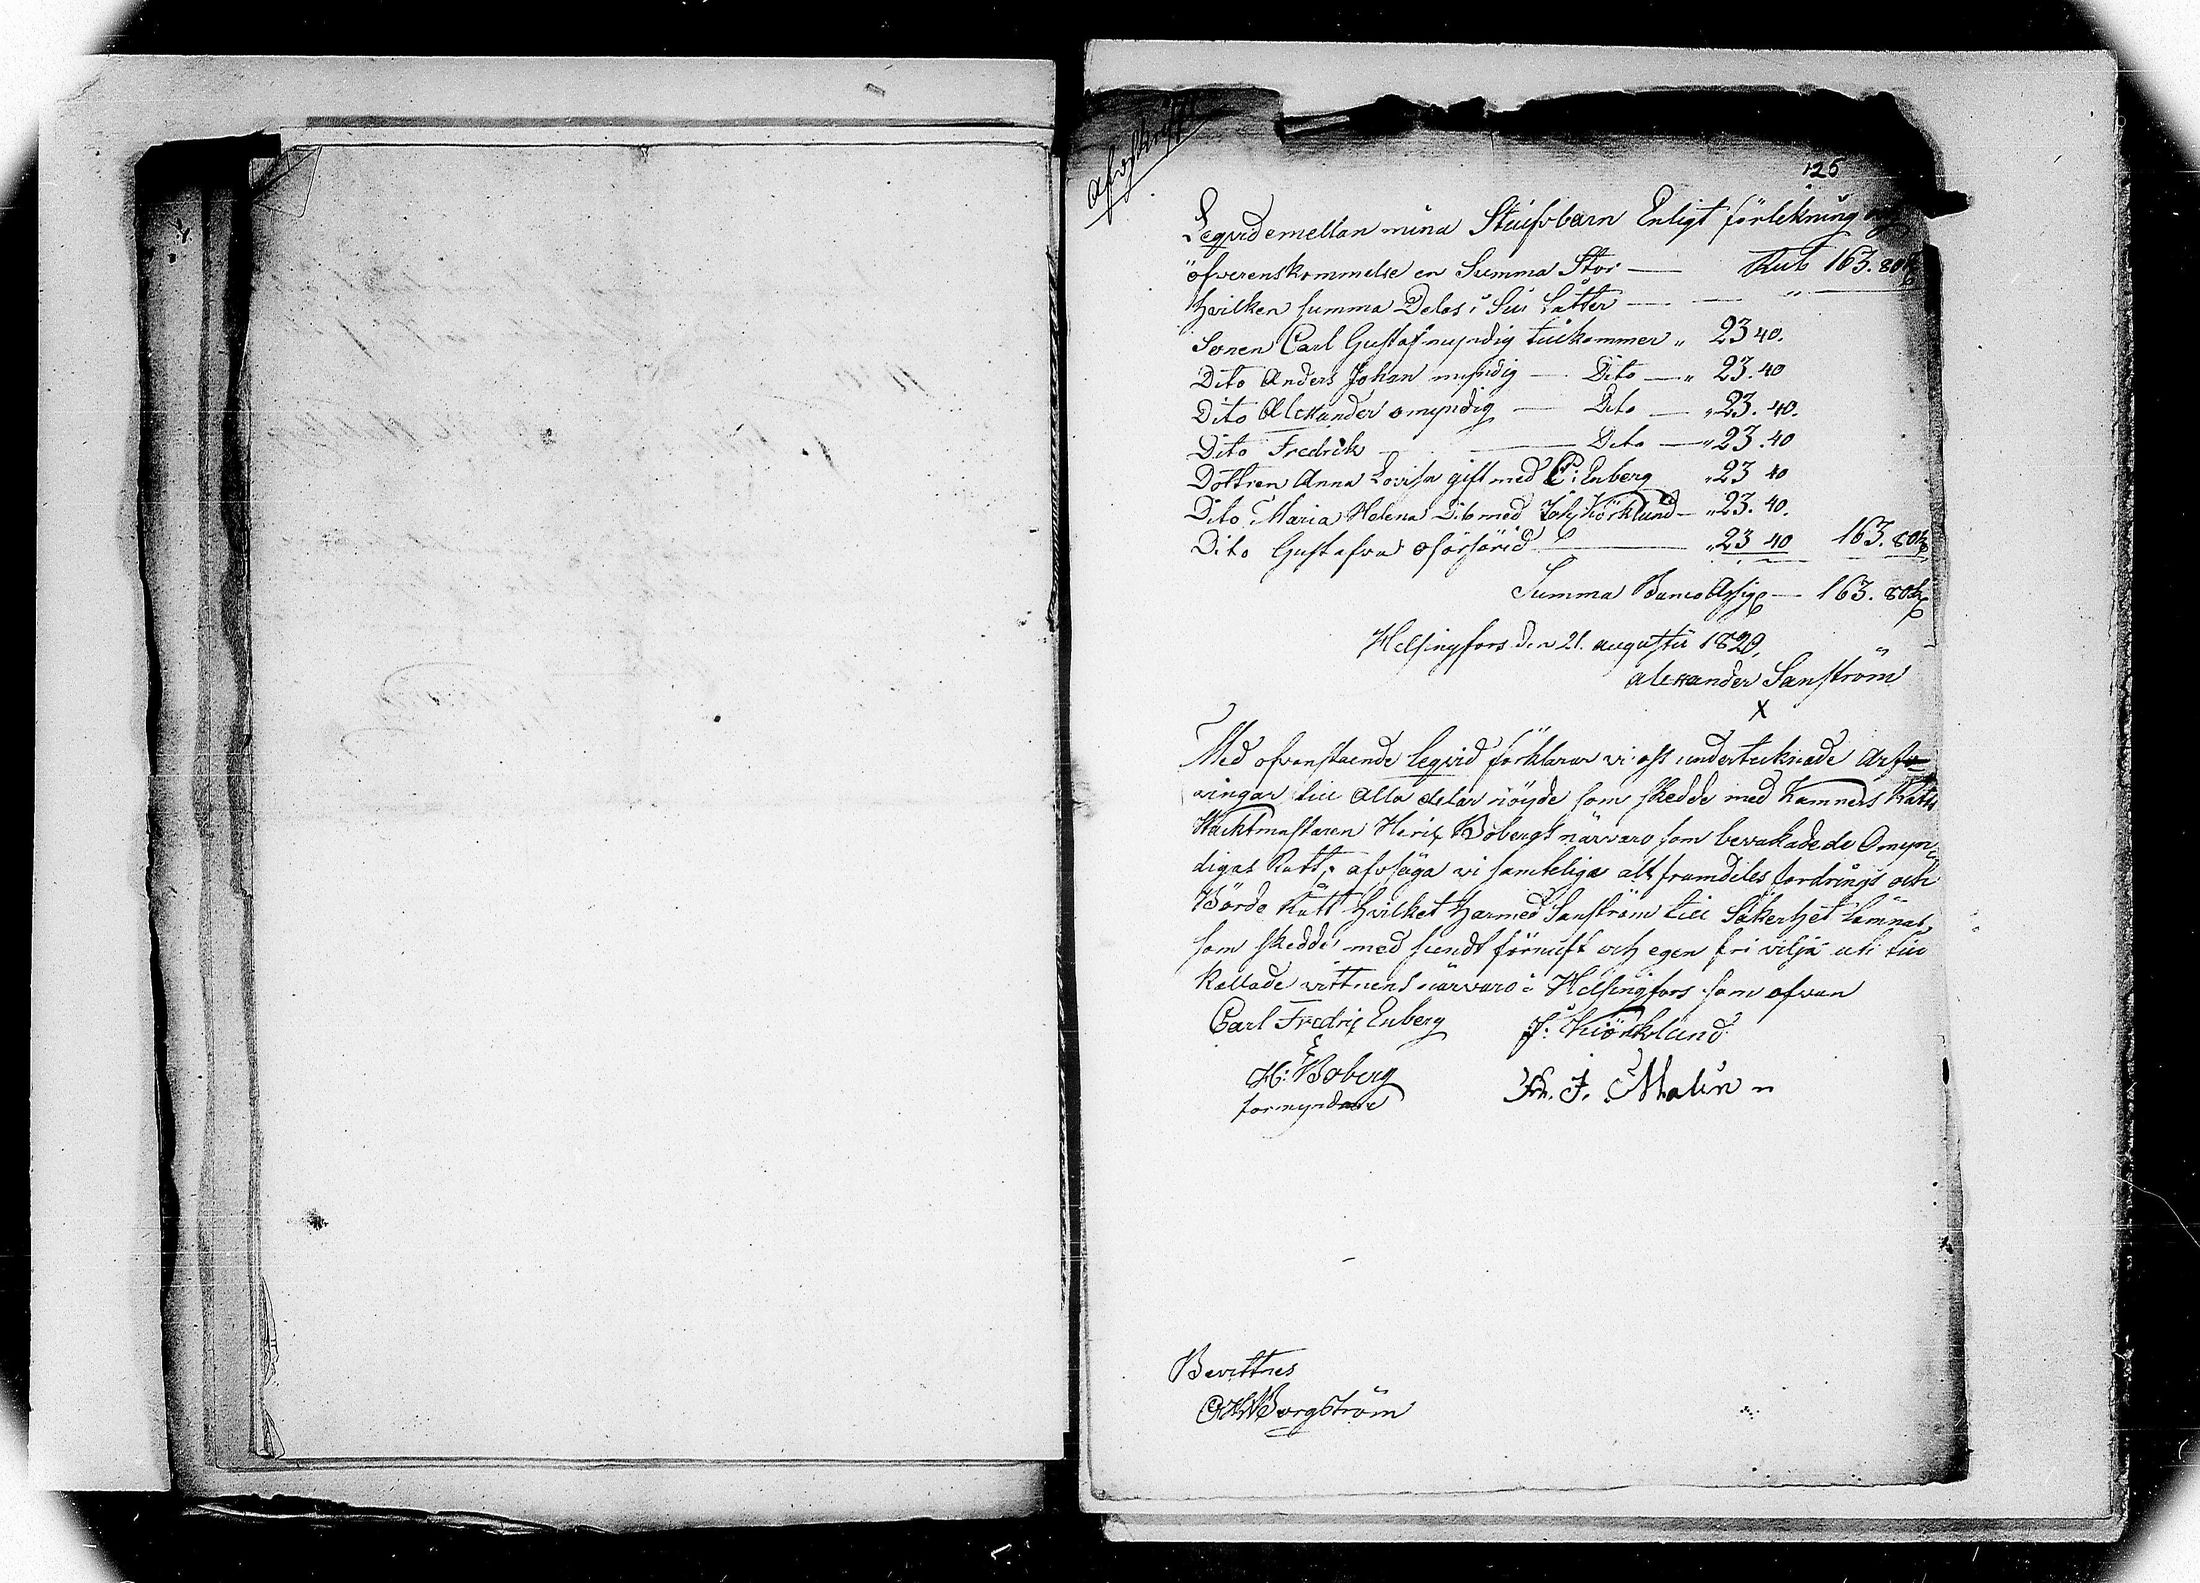 afskrifft
125
Leqvid emellan mina Stiufbarn Enligt förlikning och
öfverenskommelse en Summa Stor — Rub 163. 80k
hvilken summa Delas i Siu Låtter — — "
Sonen Carl Gustaf myndig tillkommer " 23 40.
Dito Anders Johan myndig — Dito — " 23. 40
Dito Alexander omyndig — Dito — " 23. 40.
Dito Fredrik — Dito — " 23. 40
Dottren Anna Lovisa gift med C: Enberg " 23 40
Dito Maria Helena Dito med Joh Kiörklund — " 23. 40.
Dito Gustafva oförsörid — " 23 40 163. 80k
Summa Banco Assig — 163. 80k
Helsingfors den 21. augusti 1829.
alexander Sanström
X
Med ofvanstaende leqvid förklarar vi oss undertecknade Arfv
ingar till Alla delar nöyde som skedde med Kamners Rätts
Wachtmästaren Henr: Bobergs närvaro som bevakade de Omyn-
digas Rätt, afsäga vi samtelige alt framdeles fordrings och
Börde Rätt hvilket härmed Sanström till Säkerhet lämnas,
som skedde med sundt förnuft och egen fri vilja uti till
kallade vittnens närvaro i Helsingfors som ofvan
Carl Fredric Enberg J: Kiörklund
H: Boberg J. Malin
förmyndare
Bevittnes
Borgström